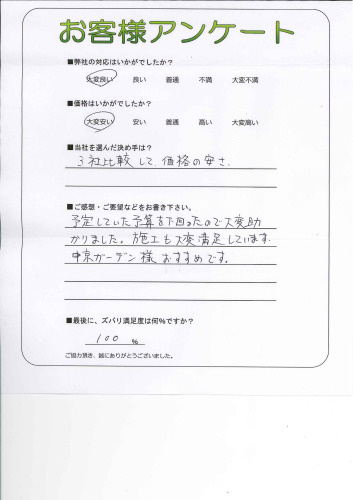 お客様アンケート
■弊社の対応はいかがでしたか？
大変良い 良い 普通 不満 大変不満
■価格はいかがでしたか？
大変安い 安い 普通 高い 大変高い
■当社を選んだ決め手は？
3社比較して、価格の安さ、
■ご感想・ご要望などをお書き下さい。
予定していた予算を下回ったので大変助
かりました。施工も大変満足しています。
中京ガーデン様おすすめです。
■最後に、ズバリ満足度は何%ですか？
100 %
ご協力頂き、誠にありがとうございました。